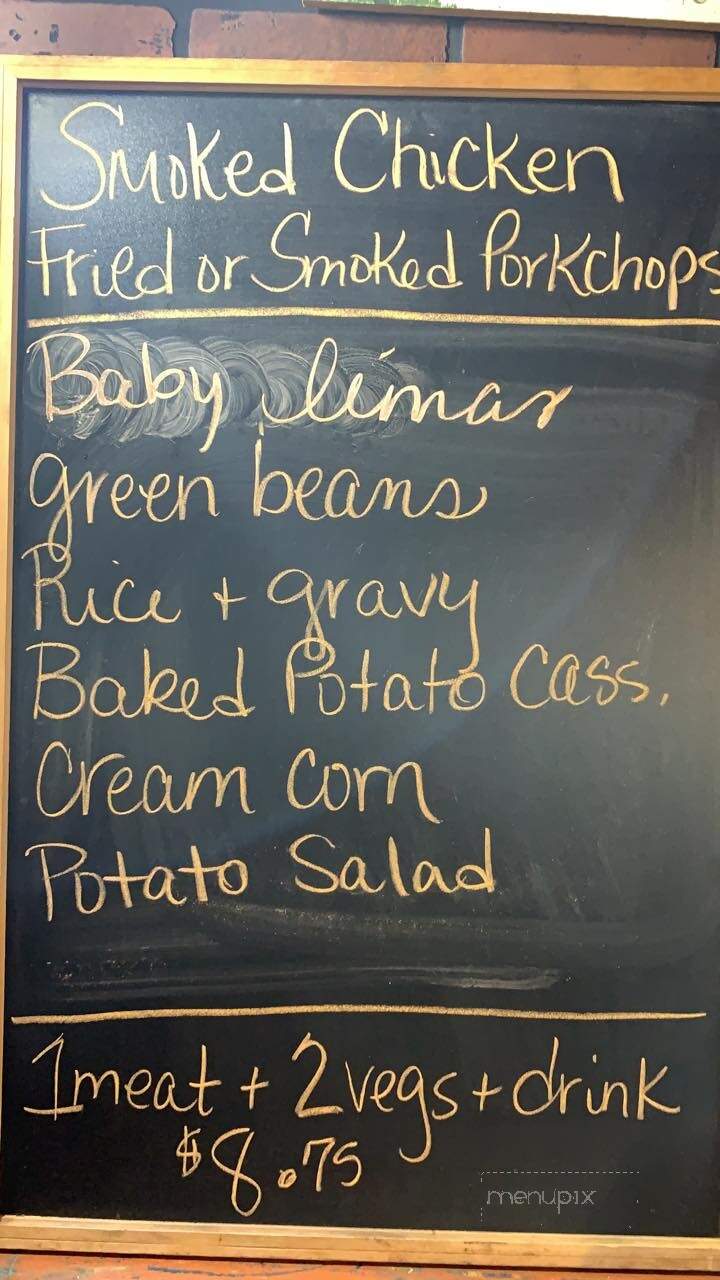 Smoked Chicken
Fried or Smoked Porkchops
Baby limas
green beans
Rice + gravy
Baked Potato Cass.
Cream Corn
Potato Salad
1 meat + 2 vegs + drink
$8.75
menupix